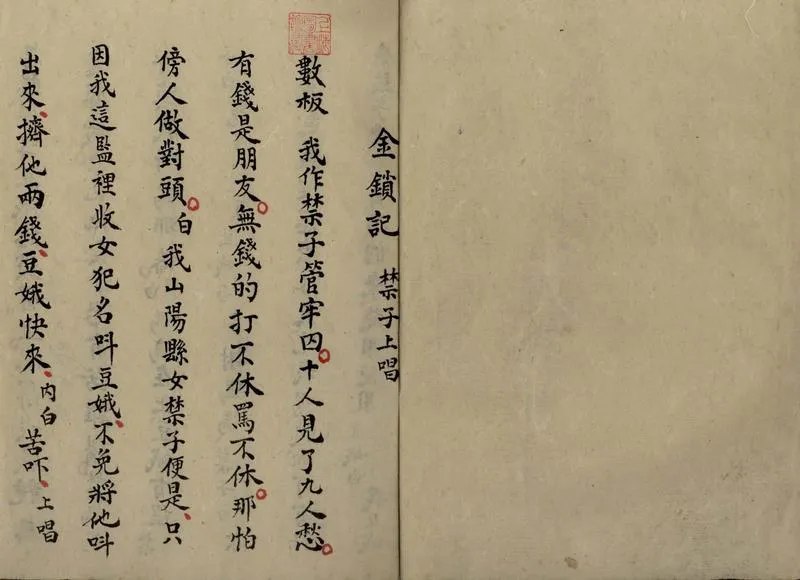 金鎖記 禁子上唱
數板 我作禁子管牢囚。十人見了九人愁。
有錢是朋友。無錢的打不休罵不休。那怕
傍人做對頭。白我山陽縣女禁子便是、只
因我這監裡收女犯名呌豆娥、不免將他呌
出來、擠他兩錢、豆娥快來、內白 苦吓、上唱